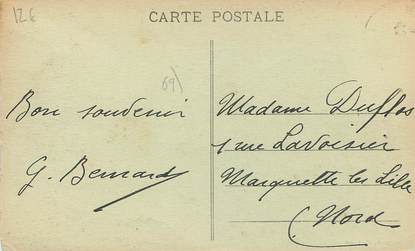 12 €
CARTE POSTALE
69)
Bon souvenir
G. Bernard
Madame Duflos
1 rue Lavoisier
Marquette lez Lille
(Nord